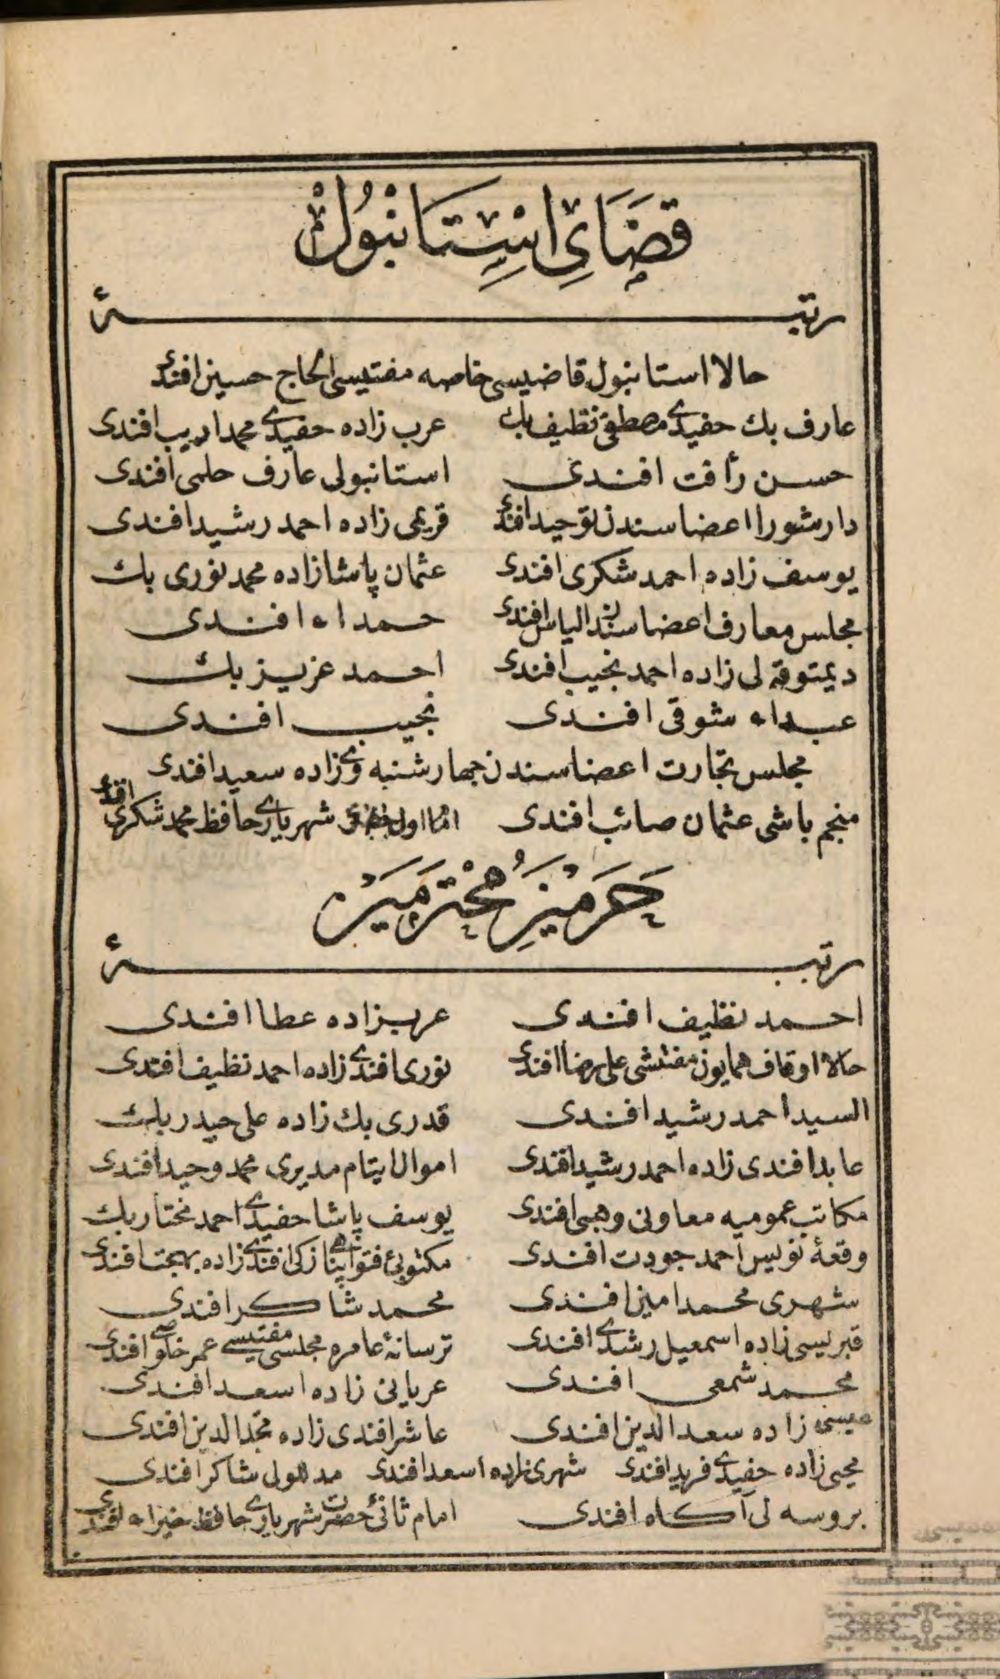 قضاى استانبول
رتبهٔ
حالا استانبول قاضیسی خاصه مفتیسی الحاج حسین افندی
عارف بك حفیدی مصطفی نظیف بك عرب زاده حفیدی محمد ادیب افندی
حسن رأفت افندی استانبولی عارف حلمی افندی
دارشورا اعضاسندن توحید افندی قریمی زاده احمد رشید افندی
یوسف زاده احمد شکری افندی عثمان پاشا زاده محمد نوری بك
مجلس معارف اعضاسندن الیاس افندی حمد الله افندی
دیمتوقه لی زاده احمد نجیب افندی احمد عزیز بك
عبد الله شوقی افندی نجیب افندی
مجلس تجارت اعضاسندن چهارشنبه وی زاده سعید افندی
منجم باشی عثمان صائب افندی امام اول حضرت شهریاری حافظ محمد شکری افندی
حرمین محترمین
رتبهٔ
احمد نظیف افندی عربزاده عطا افندی
حالا اوقاف همایون مفتشی علی رضا افندی نوری افندی زاده احمد نظیف افندی
السید احمد رشید افندی قدری بك زاده علی حیدر بك
عابد افندی زاده احمد رشید افندی اموال ایتام مدیری محمد وحید افندی
مکاتب عمومیه معاونی وهبی افندی یوسف پاشا حفیدی احمد مختار بك
وقعهٔ نویس احمد جودت افندی مکتوبئ فتواپناهی زکی افندی زاده بهجت افندی
شهری محمد امین افندی محمد شاکر افندی
قبریسی زاده اسمعیل رشدی افندی ترسانهٔ عامره مجلسی مفتیسی عمر خلوصی افندی
محمد شمعی افندی عریانی زاده اسعد افندی
عیسی زاده سعد الدین افندی عاشر افندی زاده مجد الدین افندی
محیی زاده حفیدی فرید افندی شهری زاده اسعد افندی مدللولی شاکر افندی
بروسه لی آکاه افندی امام ثانئ حضرت شهریاری حافظ خیر الله افندی